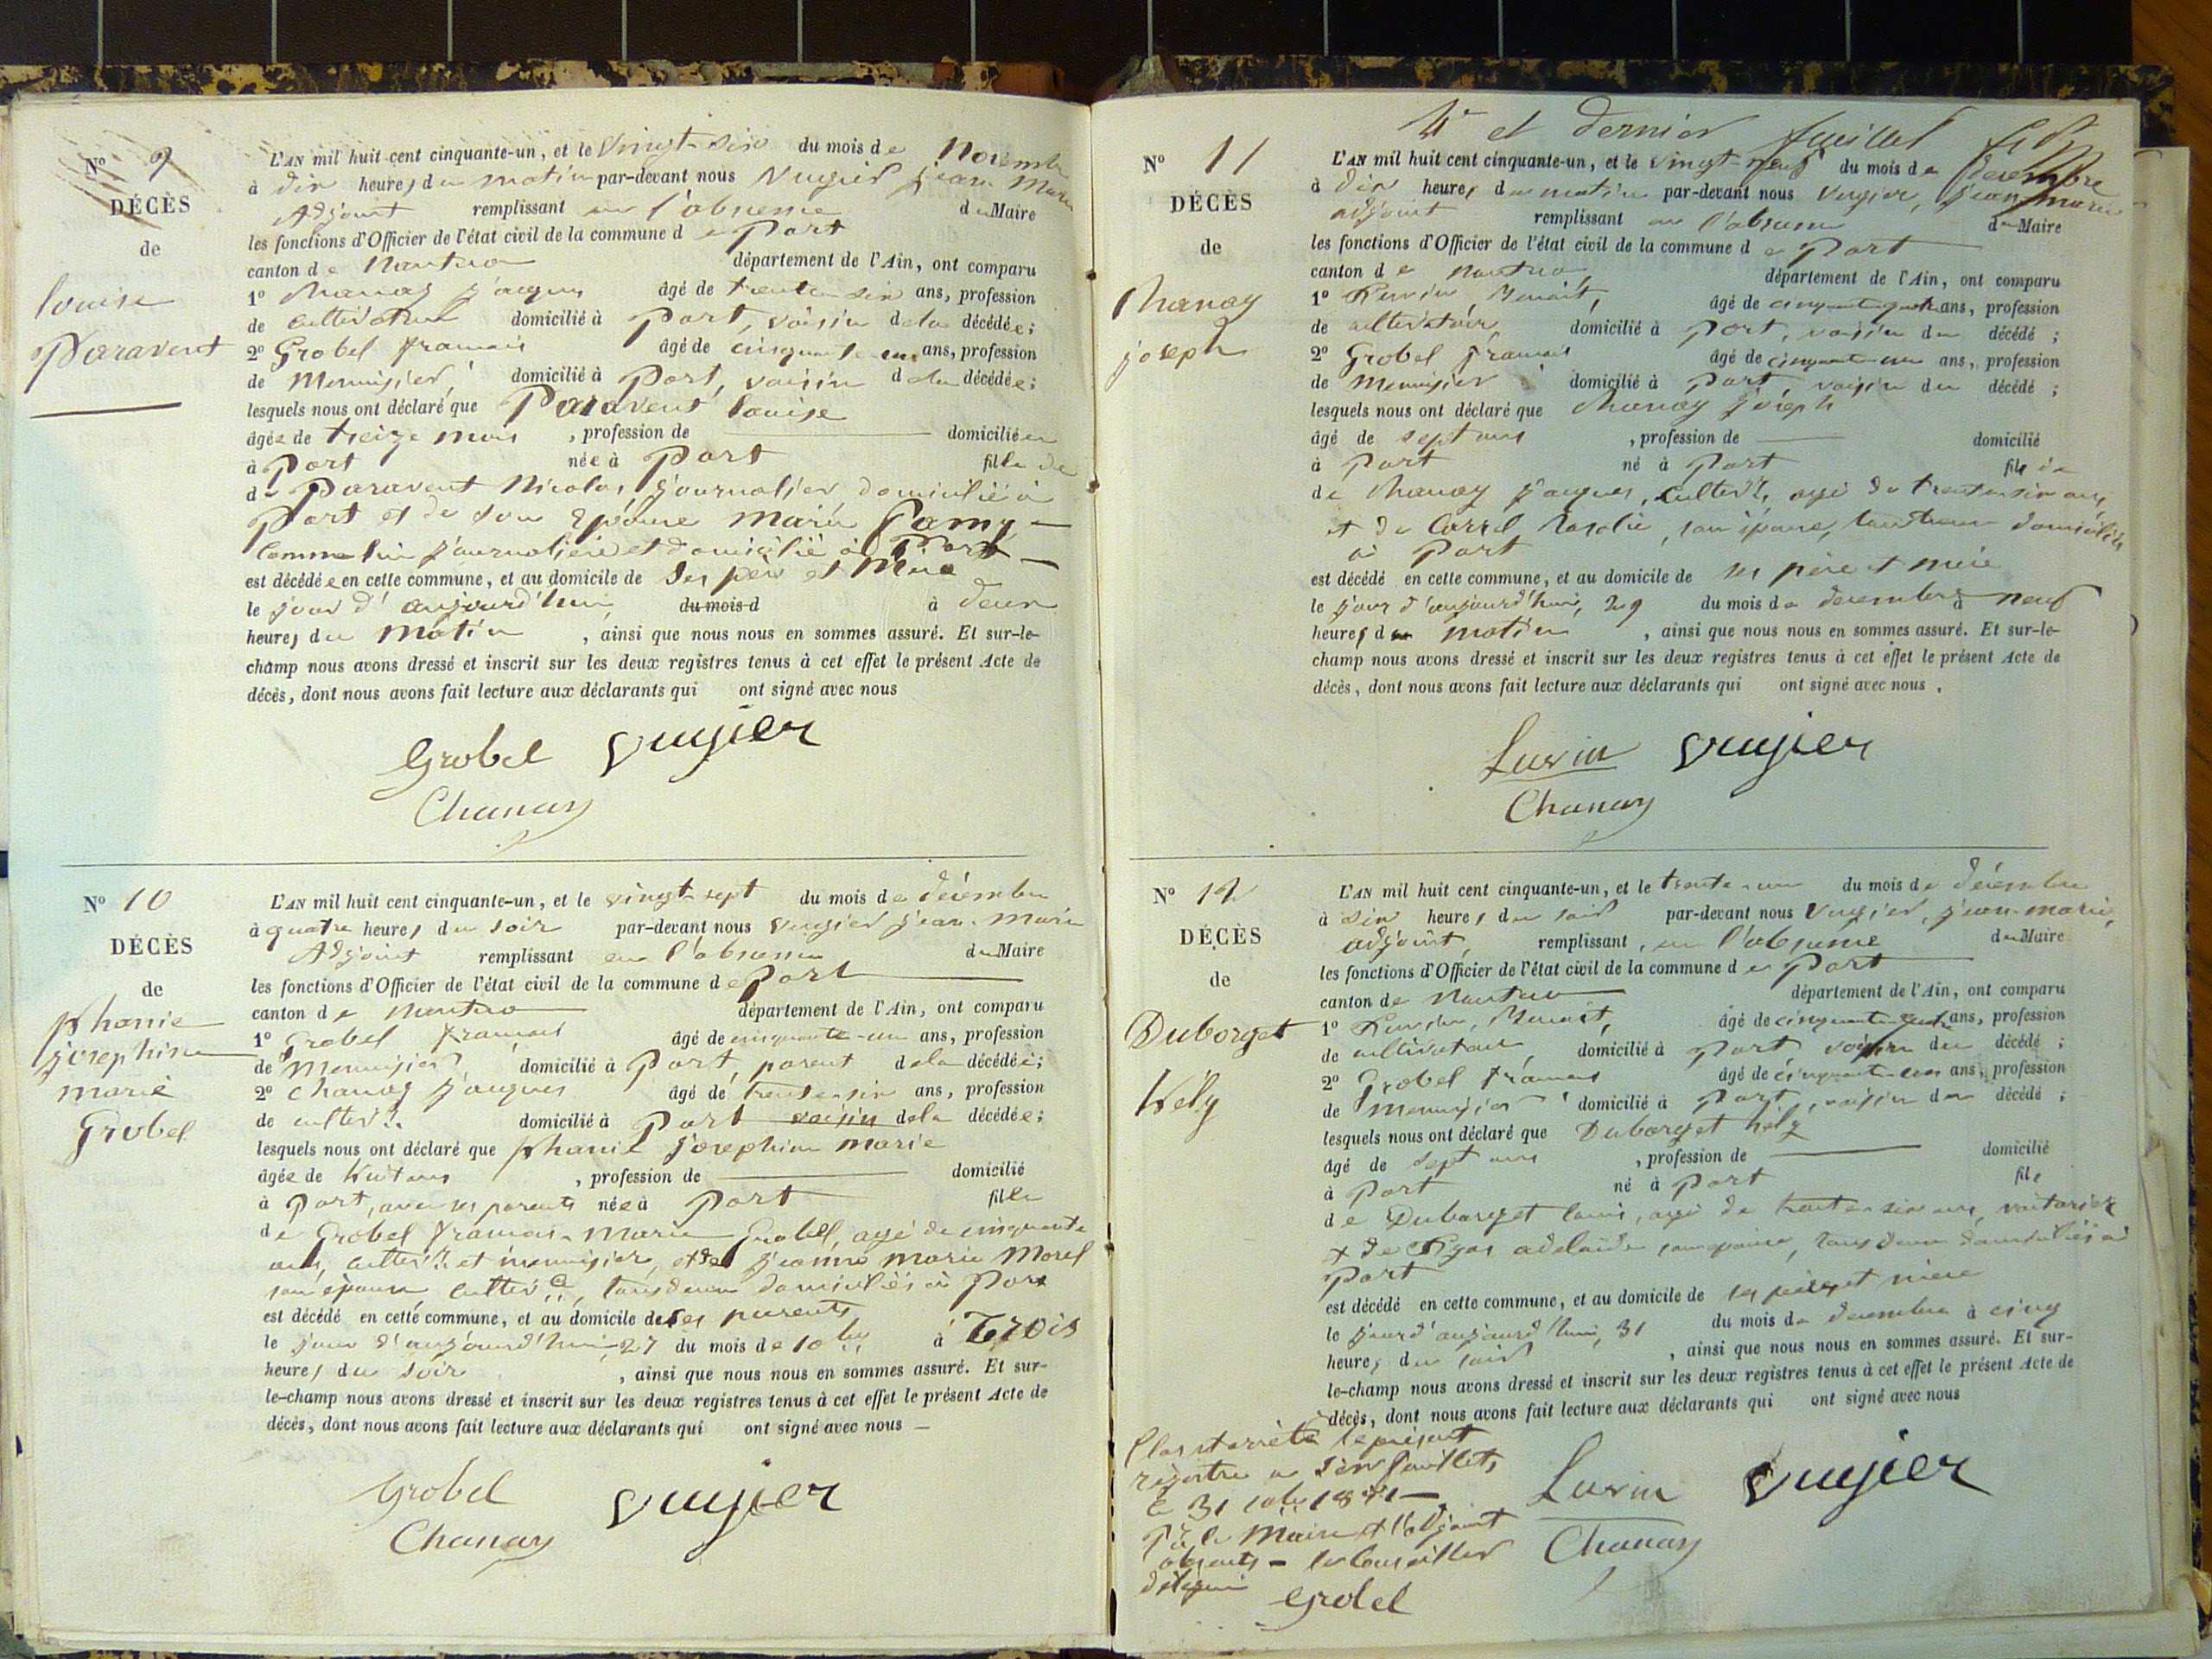 N° 9
DÉCÈS
de
louise
Paravent
L'AN mil huit cent cinquante-un, et le vingt-six du mois de Novembre
à dix heures du matin par-devant nous Vugier jean Marie
Adjoint remplissant en l'absence du Maire
les fonctions d'Officier de l'état civil de la commune de Port
canton de Nantua département de l'Ain, ont comparu
1° Chanay jacques âgé de trente six ans, profession
de cultivateur domicilié à Port, voisin de la décédée;
2° Grobel francois âgé de cinquante-un ans, profession
de Menuisier, domicilié à Port, voisin de la décédée;
lesquels nous ont déclaré que Paravent louise
âgée de treize mois , profession de domiciliée
à Port née à Port fille de
de Paravent Nicolas, journalier, domicilié à
Port et de son Epouse Marie Pamy
comme lui journalière et domicilié à Port
est décédée en cette commune, et au domicile de ses père et Mère
le jour d'aujourd'hui du mois d à deux
heures du Matin , ainsi que nous nous en sommes assuré. Et sur-le-
champ nous avons dressé et inscrit sur les deux registres tenus à cet effet le présent Acte de
décès, dont nous avons fait lecture aux déclarants qui ont signé avec nous
Grobel Vugier
Chanay
N° 10
DÉCÈS
de
phanie
josephine
marie
Grobel
L'AN mil huit cent cinquante-un, et le vingt-sept du mois de décembre
à quatre heures du soir par-devant nous Vugier jean-Marie
Adjoint remplissant en l'absence du Maire
les fonctions d'Officier de l'état civil de la commune de Port
canton de Nantua département de l'Ain, ont comparu
1° Grobel francois âgé de cinquante-un ans, profession
de Menuisier domicilié à Port, parent de la décédée;
2° Chanay jacques âgé de trente-six ans, profession
de cultivr. domicilié à Port voisin de la décédée;
lesquels nous ont déclaré que phanie josephine marie
âgée de huit ans , profession de domicilié
à Port, avec ses parents née à Port fille
de Grobel francois-Marie Grobel, agé de cinquante
ans, cultivr. et menuisier, et de jeanne marie Morel
son épouse cultivce, tous deux domiciliés à Port
est décédé en cette commune, et au domicile de ses parents
le jour d'aujourd'hui 27 du mois de 10bre à Trois
heures du soir , ainsi que nous nous en sommes assuré. Et sur-
le-champ nous avons dressé et inscrit sur les deux registres tenus à cet effet le présent Acte de
décès, dont nous avons fait lecture aux déclarants qui ont signé avec nous —
Grobel Vugier
Chanay
4e et dernier feuillet
N° 11
DÉCÈS
de
Chanay
joseph
L'AN mil huit cent cinquante-un, et le vingt-neuf du mois de décembre
à dix heures du matin par-devant nous Vugier, jean marie
adjoint remplissant en l'absence du Maire
les fonctions d'Officier de l'état civil de la commune de Port
canton de nantua, département de l'Ain, ont comparu
1° Benoit, âgé de cinquante quatre ans, profession
de cultivateur, domicilié à Port, voisin du décédé ;
2° Grobel francois âgé de cinquante-un ans, profession
de Menuisier domicilié à Port, voisin du décédé ;
lesquels nous ont déclaré que Chanay joseph
âgé de sept ans , profession de domicilié
à Port né à Port fils de
de Chanay jacques, cultivr, agé de trente six ans,
et de Carrel Rosalie, son épouse, tous deux domiciliés
à Port
est décédé en cette commune, et au domicile de ses père et mère
le jour d'aujourd'hui, 29 du mois de decembre à neuf
heures du matin , ainsi que nous nous en sommes assuré. Et sur-le-
champ nous avons dressé et inscrit sur les deux registres tenus à cet effet le présent Acte de
décès, dont nous avons fait lecture aux déclarants qui ont signé avec nous .
Luvin Vugier
Chanay
N° 12
DÉCÈS
de
Duborget
hély
L'AN mil huit cent cinquante-un, et le trente-un du mois de décembre
à six heures du soir par-devant nous Vugier, jean-marie,
adjoint, remplissant, en l'absence du Maire
les fonctions d'Officier de l'état civil de la commune de Port
canton de Nantua département de l'Ain, ont comparu
1° Benoit, âgé de cinquante quatre ans, profession
de cultivateur, domicilié à Port voisin du décédé ;
2° Grobel francois âgé de cinquante-un ans, profession
de menuisier domicilié à Port, voisin du décédé ;
lesquels nous ont déclaré que Duborget hély
âgé de sept ans , profession de domicilié
à Port né à Port fils
de Duborget louis, agé de trente-six ans, voiturier
et de adelaide son épouse, tous deux domiciliés à
Port
est décédé en cette commune, et au domicile de ses père et mère
le jour d'aujourd'hui, 31 du mois de decembre à cinq
heures du soir , ainsi que nous nous en sommes assuré. Et sur-
le-champ nous avons dressé et inscrit sur les deux registres tenus à cet effet le présent Acte de
décès, dont nous avons fait lecture aux déclarants qui ont signé avec nous
Clos et arrêté le présent
régistre a feuillets
le 31 10bre 1851
Pr le Maire et l'adjoint
absents - le Conseiller
délégué
Grobel
Luvin Vugier
Chanay